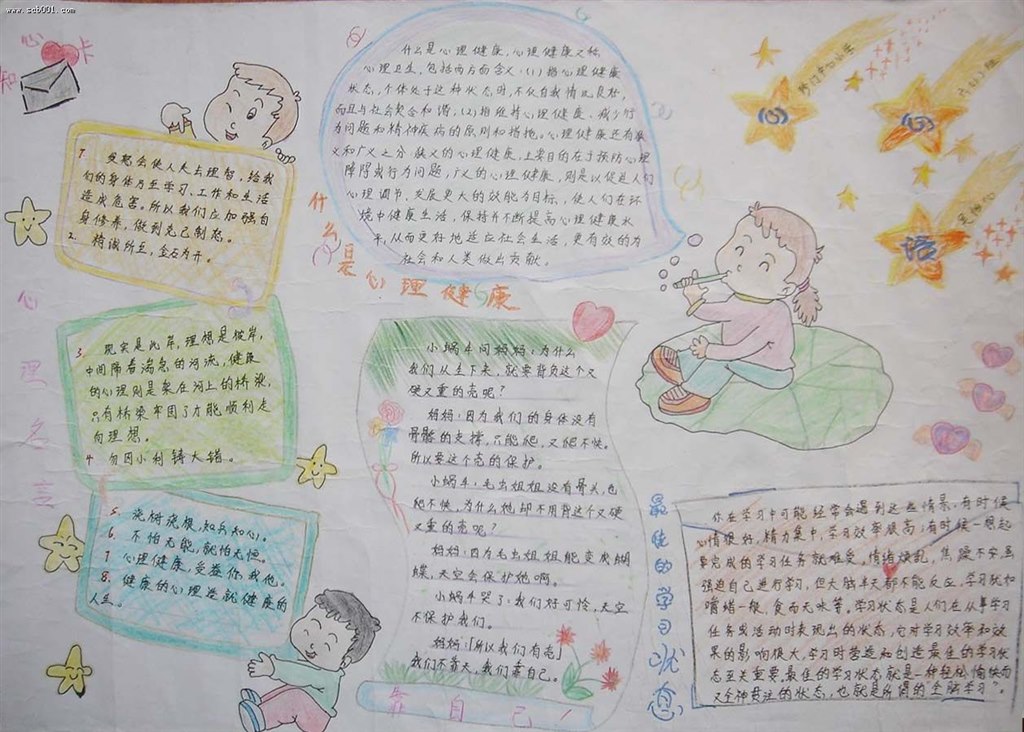 www.scb001.com
知心卡
1. 发怒会使人失去理智,给我
们的身体乃至学习、工作和生活
造成危害。所以我们应加强自
身修养,做到克己制怒。
2. 精诚所至,金石为开。
3. 现实是此岸,理想是彼岸,
中间隔着湍急的河流,健康
的心理则是架在河上的桥梁,
只有桥梁牢固了才能顺利走
向理想。
4 勿因小利铸大错。
5. 浇树浇根,知兵知心。
6. 不怕无能,就怕无恒。
7 心理健康,受益你我他。
8. 健康的心理造就健康的
人生。
心理名言
什么是心理健康,心理健康又称
心理卫生,包括两方面含义:(1)指心理健康
状态,个体处于这种状态时,不仅自我情况良好,
而且与社会契合和谐,(2)指维持心理健康、减少行
为问题和精神疾病的原则和措施。心理健康还有狭
义和广义之分,狭义的心理健康,主要目的在于预防心理
障碍或行为问题,广义的心理健康,则是以促进人们
心理调节、发展更大的效能为目标,使人们在环
境中健康生活,保持并不断提高心理健康水
平,从而更好地适应社会生活,更有效的为
社会和人类做出贡献。
什么是心理健康
小蜗牛问妈妈:为什么
我们从生下来,就要背负这个又
硬又重的壳呢?
妈妈:因为我们的身体没有
骨骼的支撑,只能爬,又爬不快。
所以要这个壳的保护。
小蜗牛:毛虫姐姐没有骨头,也
爬不快,为什么她却不用背这个又硬
又重的壳呢?
妈妈:因为毛虫姐姐能变成蝴
蝶,天空会保护她啊。
小蜗牛哭了:我们好可怜,天空
不保护我们。
妈妈:「所以我们有壳」
我们不靠天,我们靠自己。
靠自己!
心
心
语
最佳的学习状态
你在学习中可能经常会遇到这些情景:有时候
心情很好,精力集中,学习效率很高;有时候一想起
要完成的学习任务就难受,情绪烦乱,焦躁不安虽
强迫自己进行学习,但大脑半天都不能反应,学习犹如
嚼蜡一般,食而无味等。学习状态是人们在从事学习
任务或活动时表现出的状态,它对学习效率和效
果的影响很大,学习时营造和创造最佳的学习状
态至关重要,最佳的学习状态就是一种轻松愉快而
又全神贯注的状态,也就是所谓的全脑学习。